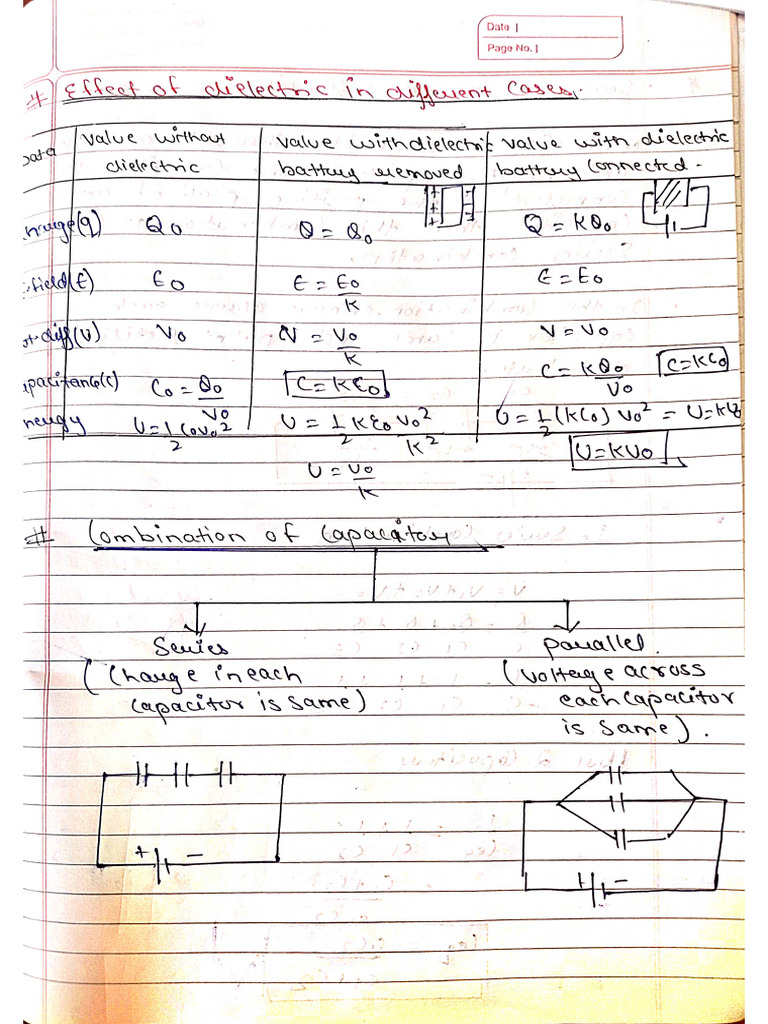 Date |
Page No. |
# Effect of dielectric in different Cases.
Data | Value without dielectric | Value with dielectric battery removed | Value with dielectric battery connected.
charge(q) | Q0 | Q = Q0 | Q = KQ0
field(E) | E0 | E = E0/K | E = E0
pot.diff(V) | V0 | V = V0/K | V = V0
capacitance(c) | C0 = Q0/V0 | C = KE0 | C = KQ0/V0 C=KC0
energy | U = 1/2 C0V0² | U = 1/2 KE0 V0²/K² | U = 1/2 (KC0) V0² = U=KU0
U = V0/K
U=KU0
# Combination of Capacitor
Series
parallel.
(Charge in each
capacitor is same)
(voltage across
each capacitor
is same).
+ -
+ -